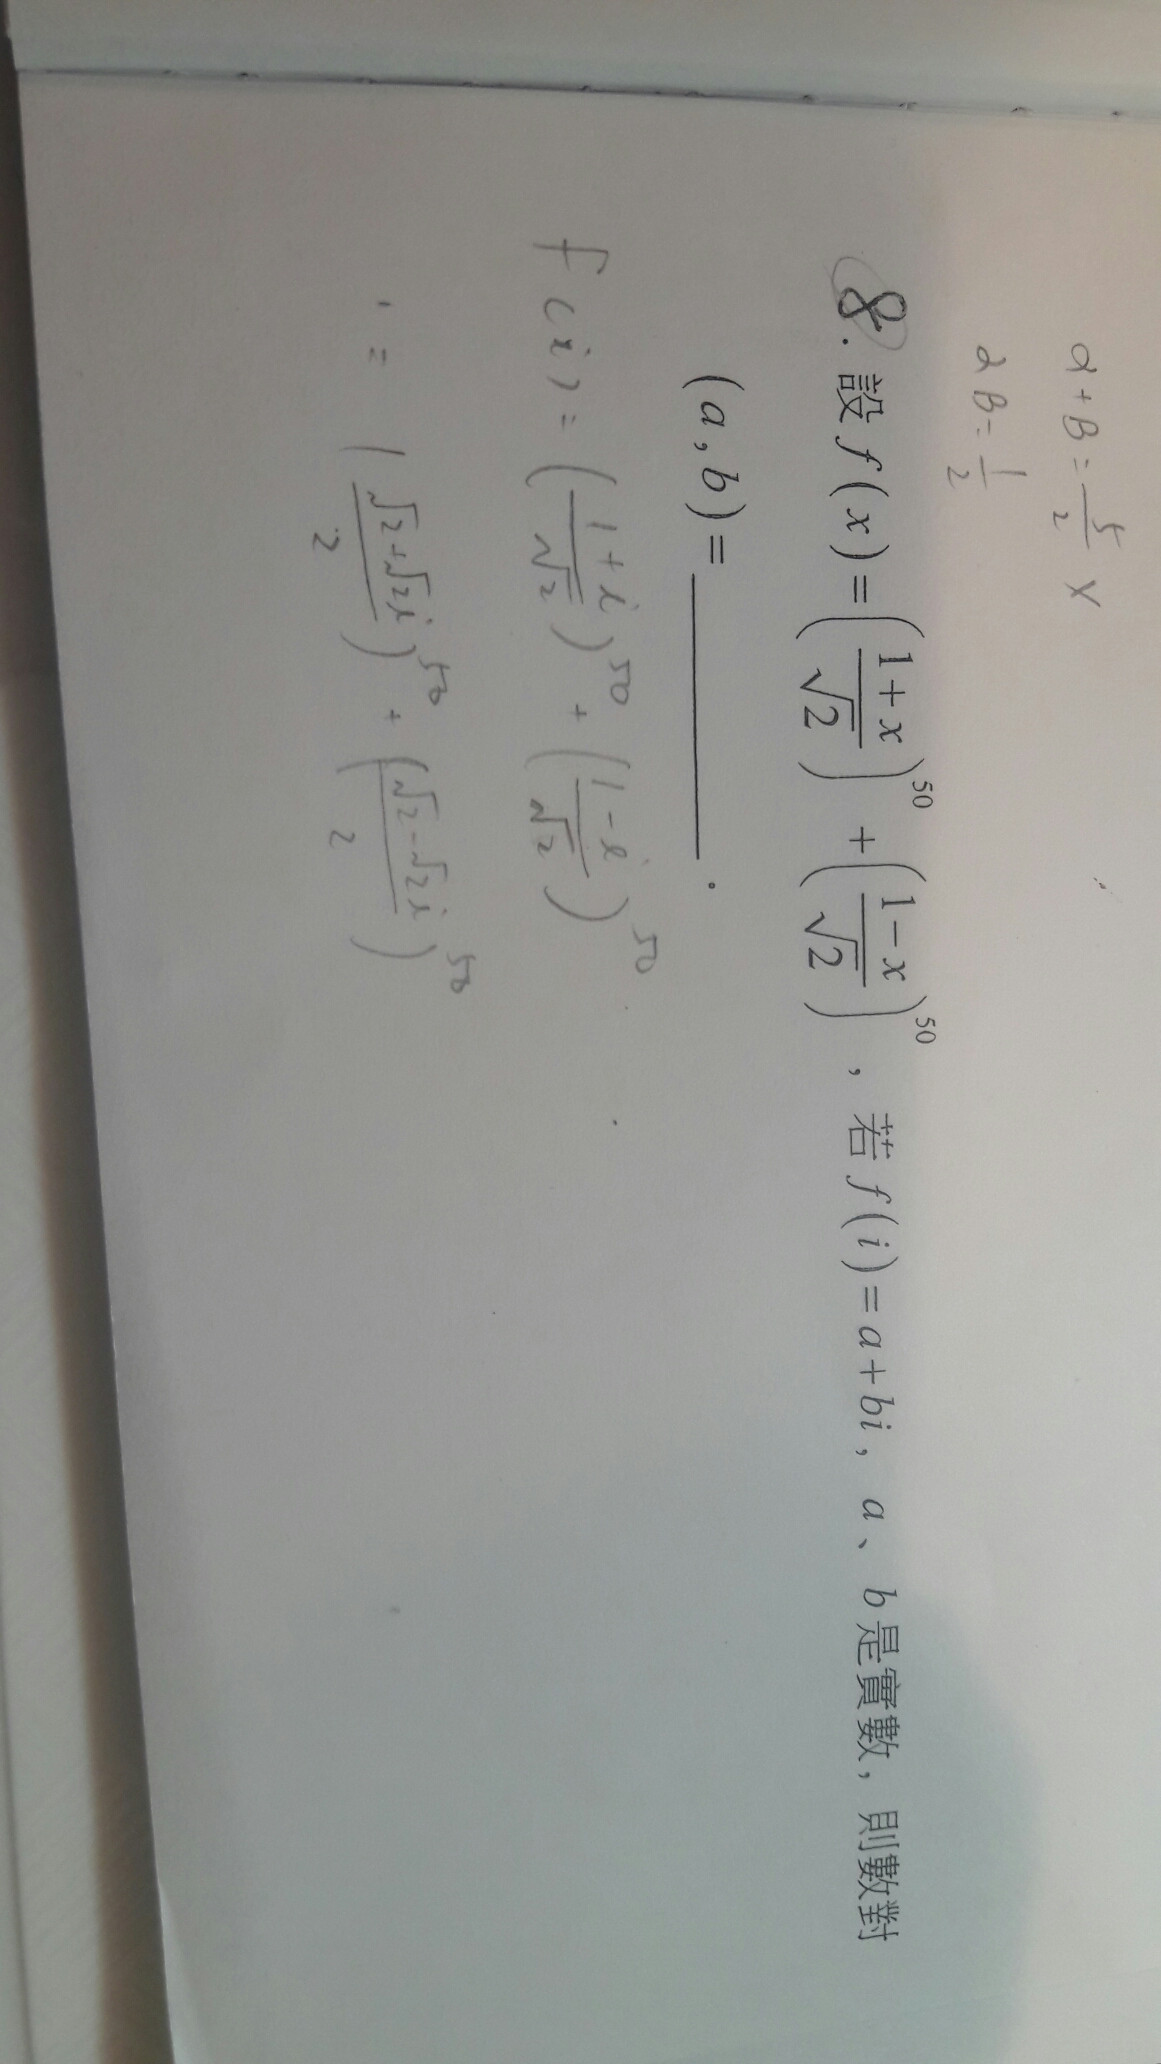 α+B=5/2 x
αB=1/2
8. 設 f(x)=((1+x)/√2)^50+((1−x)/√2)^50，若 f(i)=a+bi，a、b是實數，則數對
(a,b)=________.
f(i)=((1+i)/√2)^50+((1-i)/√2)^50
=((√2+√2i)/2)^50+((√2-√2i)/2)^50